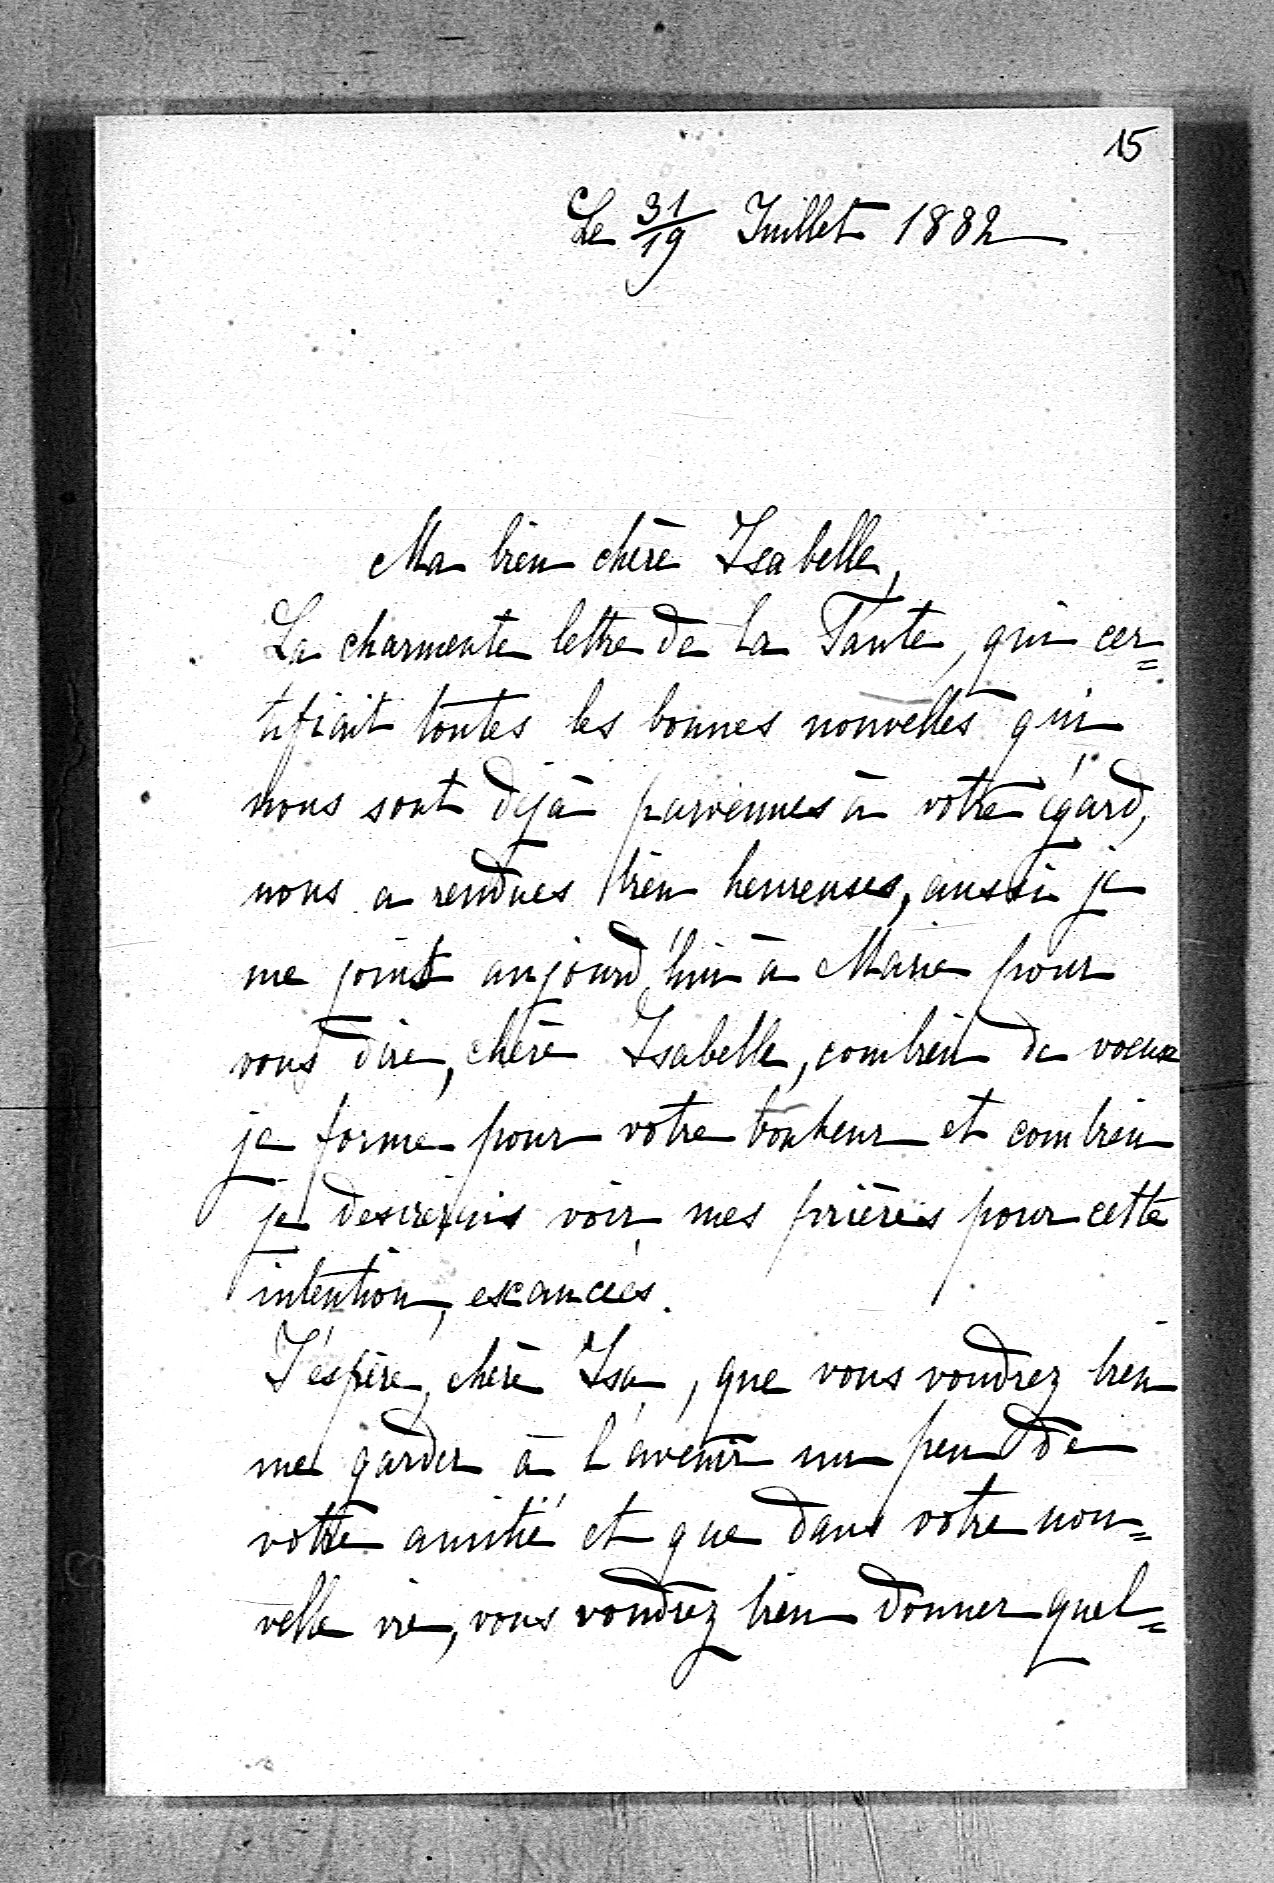 15
Le 31/19 Juillet 1882
Ma bien chère Isabelle,
La charmente lettre de la Tante, qui cer=
tifiait toutes les bonnes nouvelles qui
nous sont déjà parvenues à votre égard,
nous a rendues bien heureuses, aussi je
me joint aujourd'hui à Marie pour
vous dire, chère Isabelle, combien de voeux
je forme pour votre bonheur et combien
je desirerais voir mes prières pour cette
intention, exaucées.
J'éspère, chère Isa, que vous voudrez bien
me garder à l'avenir un peu de
votre amitié et que dans votre nou=
velle vie, vous voudrez bien donner quel=